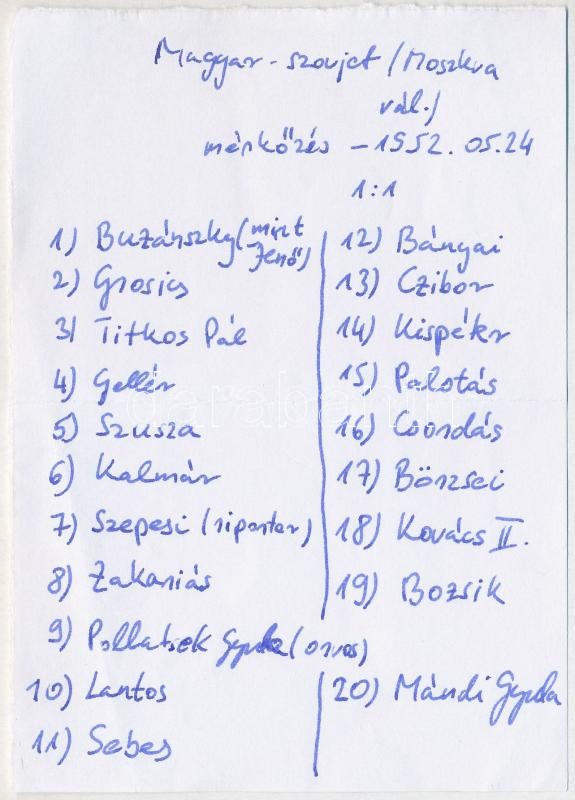 Magyar - szovjet / Moszkva
vál./
mérkőzés - 1952. 05.24
1:1
1) Buzánszky (mint
Jenő)
2) Grosics
3) Titkos Pál
4) Gellér
5) Szusza
6) Kalmár
7) Szepesi (riporter)
8) Zakariás
9) Pollatsek Gyula (orvos)
10) Lantos
11) Sebes
12) Bányai
13) Czibor
14) Kispéter
15) Palotás
16) Csordás
17) Börzsei
18) Kovács II.
19) Bozsik
20) Mándi Gyula